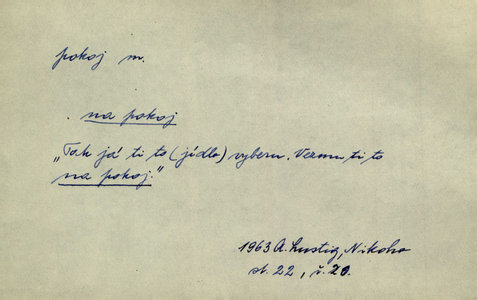 pokoj m.
. na pokoj
„Tak já ti to (jídlo) vyberu. Vezmu ti to
na pokoj."
1963 A. Lustig, Nikoho
st. 22, ř. 20.